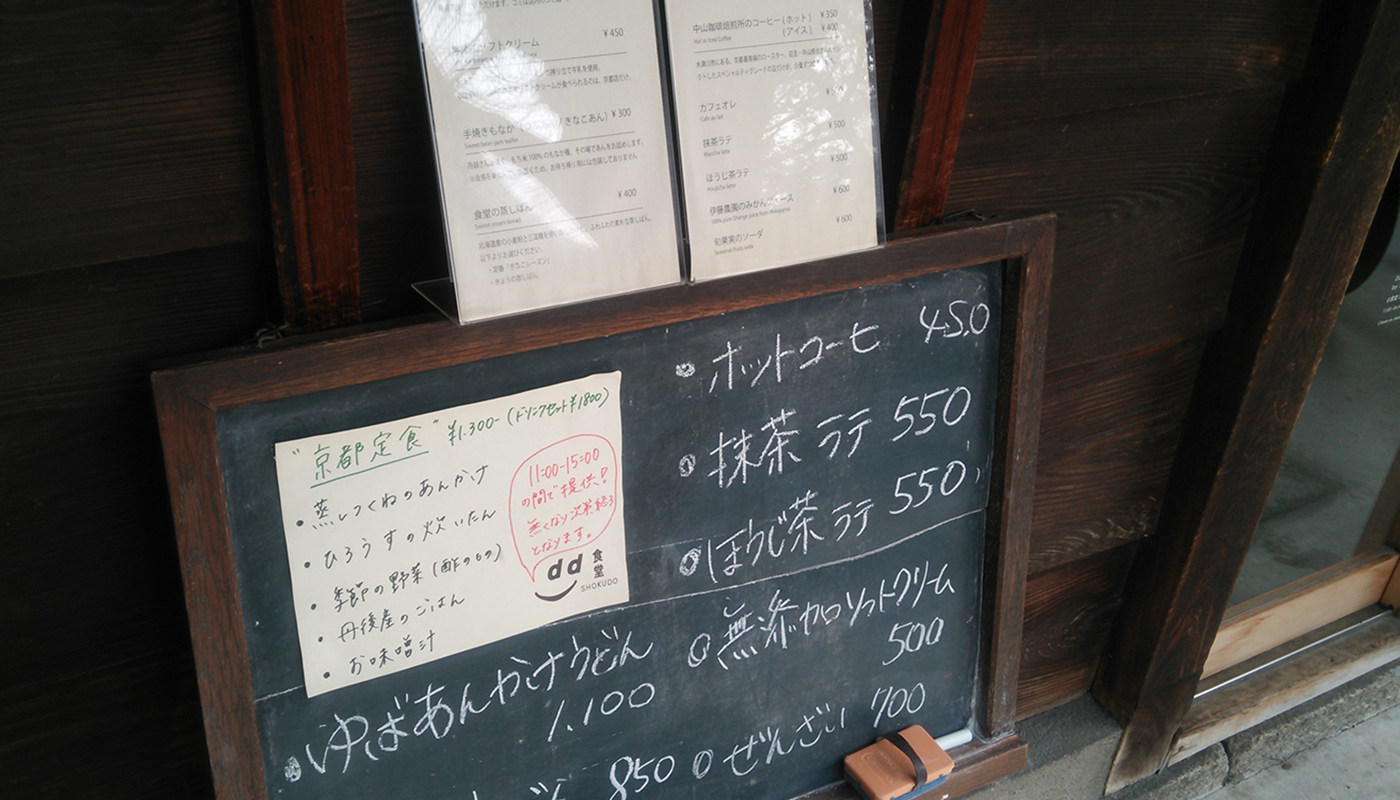 ソフトクリーム ¥450
手焼きもなか きなこあん) ¥300
Sweet bean jam wafer
食堂の蒸しぱん ¥400
Sweet steam bread
以下よりお選びください。
・定番「きなこレーズン」
・きょうの蒸しぱん
中山珈琲焙煎所のコーヒー(ホット) ¥350
Hot or Iced Coffee (アイス) ¥400
カフェオレ
Cafe au lait
抹茶ラテ ¥500
Maccha latte
ほうじ茶ラテ ¥500
Houjicha latte
伊藤農園のみかん ース ¥600
100% pure Orange juice from Wakayama
旬果実のソーダ ¥600
Seasonal fruits soda
"京都定食" ¥1.300-(ドリンクセット¥1800)
・蒸しつくねのあんかけ
・ひろうすの炊いたん
・季節の野菜(酢のもの)
・丹後産のごはん
・お味噌汁
11:00-15:00
の間で提供!
無くなり次第終了
となります。
dd食堂
SHOKUDO
ホットコーヒ 450
抹茶ラテ 550
ほうじ茶ラテ 550
無添加ソフトクリーム
500
ゆばあんかけうどん
1.100
850
ぜんざい 700